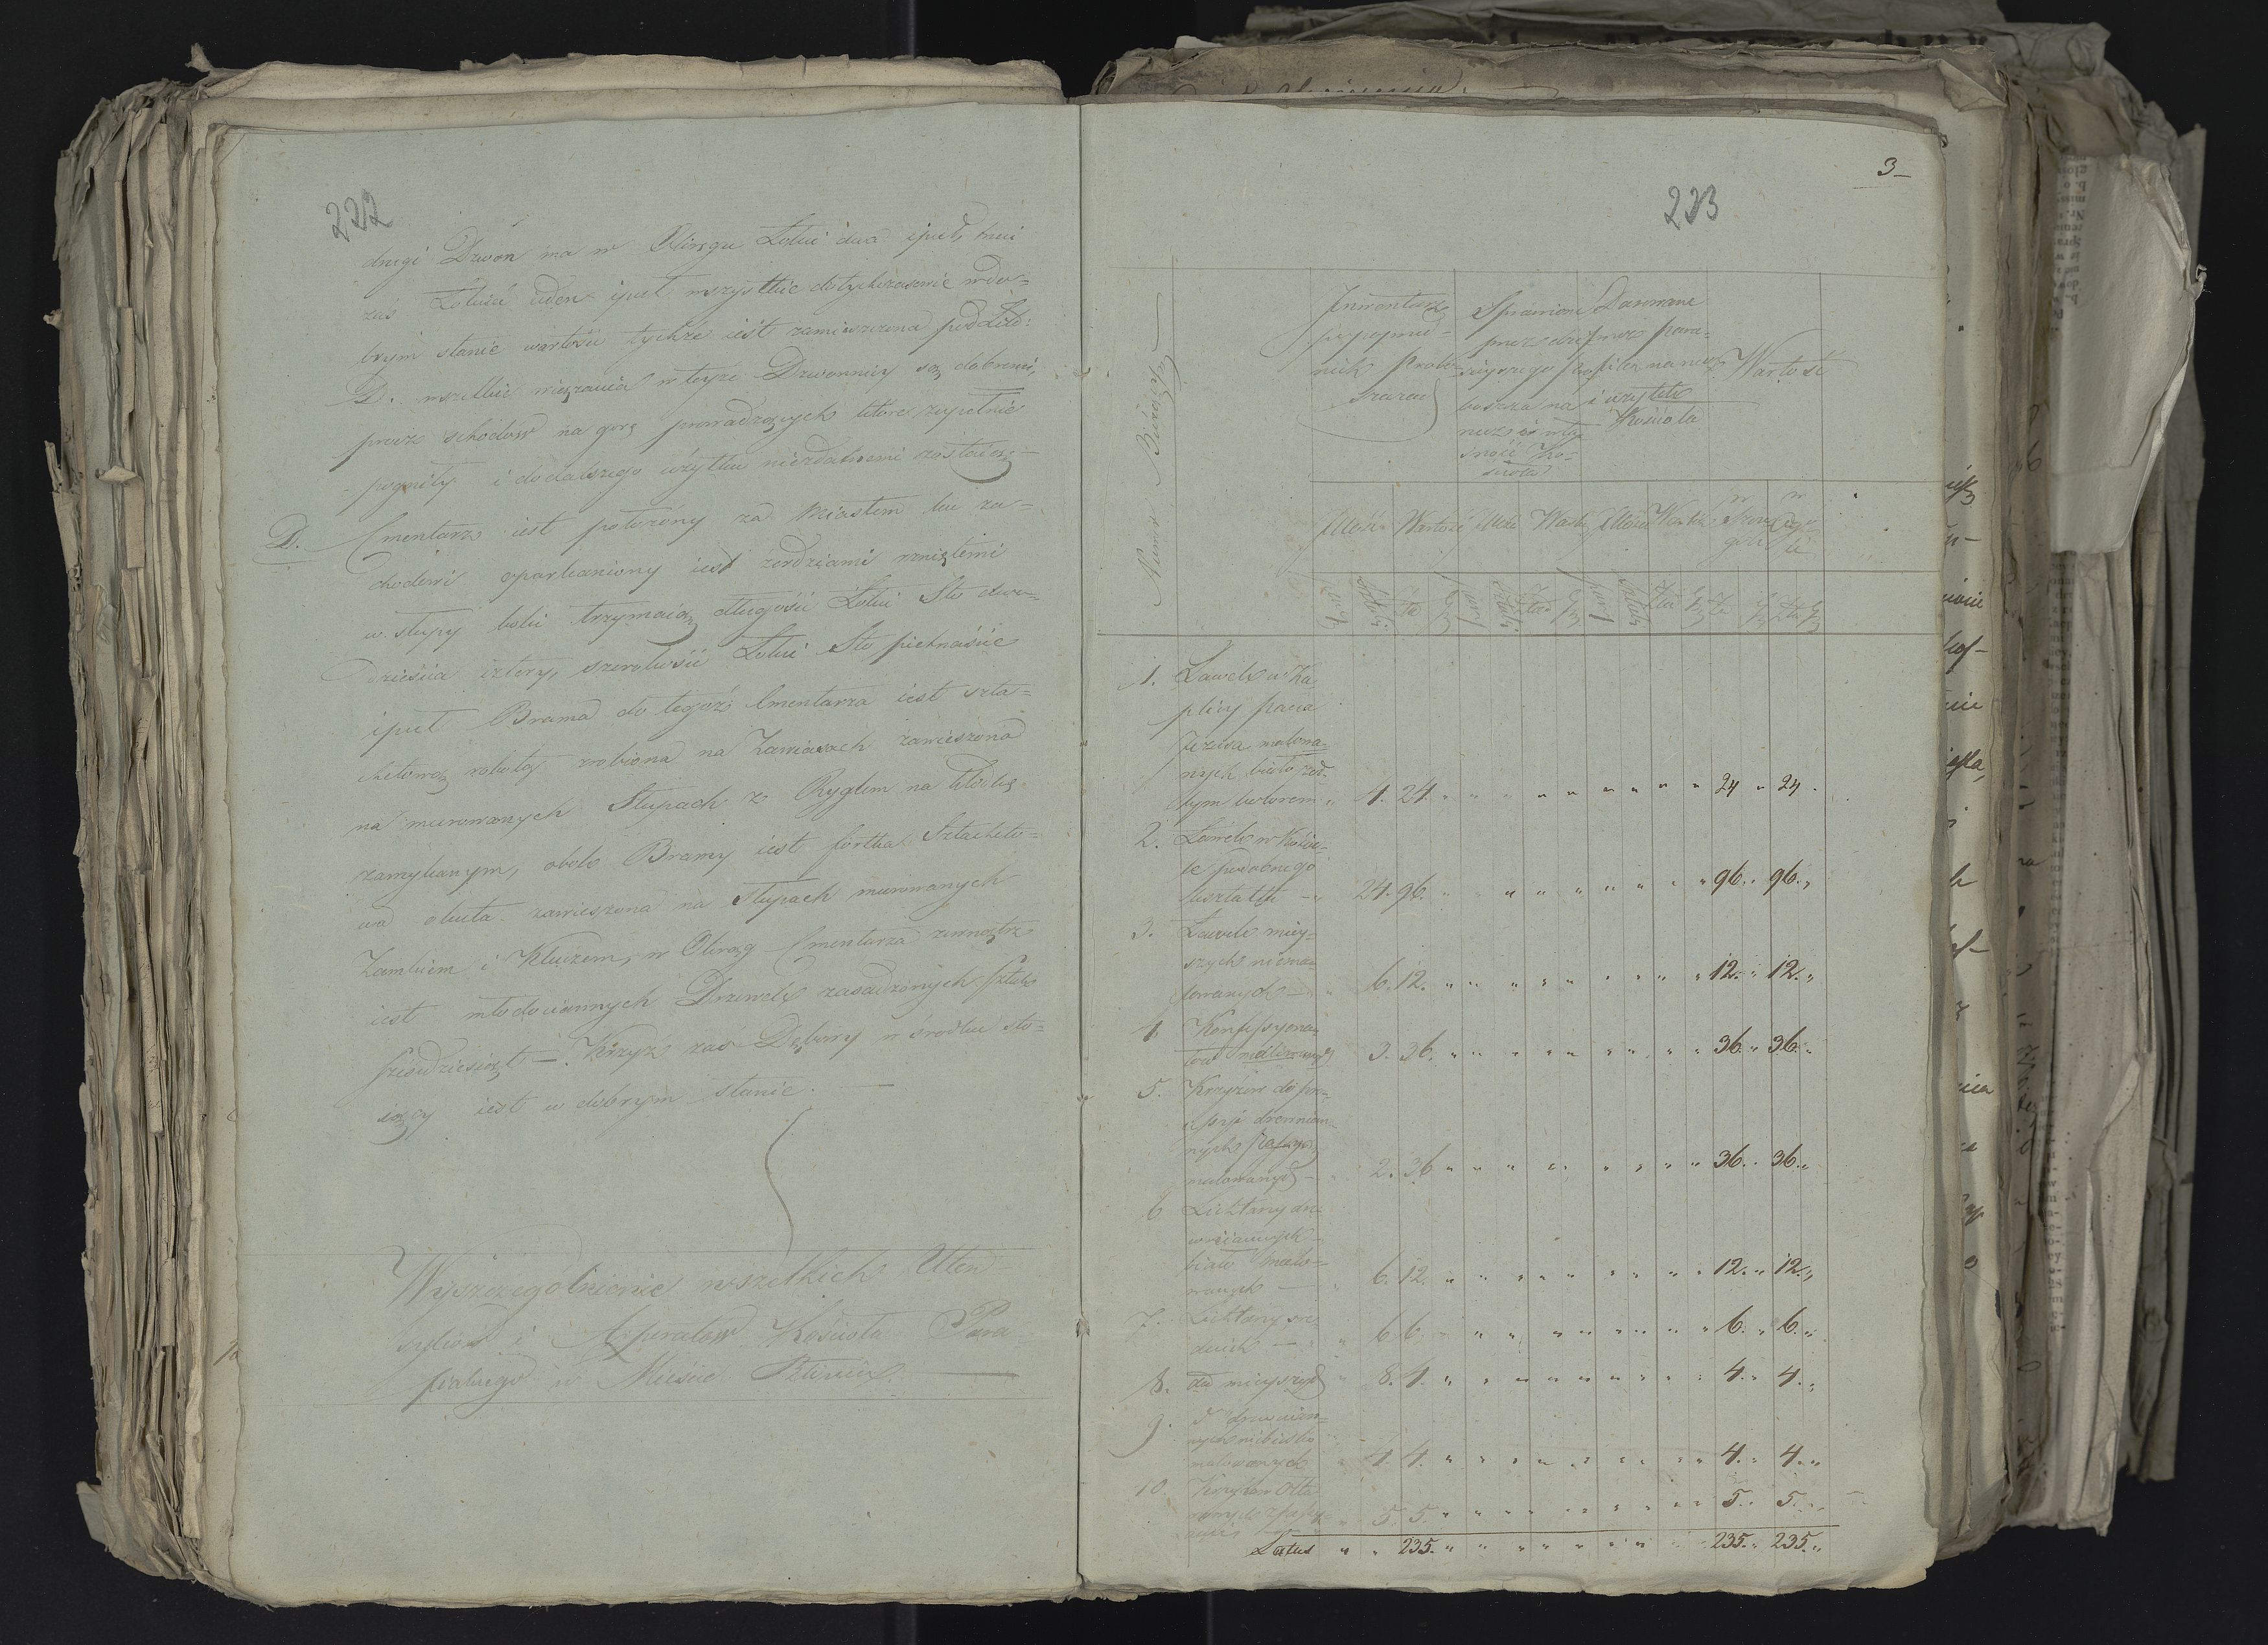 222
drugi Dzwon ma w Okręgu Łokci dwa i puł, trzci
zaś Łokieć ieden i puł wszystkie dotychczasowie w do=
brym stanie wartość tychże iest zamieszczona pod Lit:
D. wszelkie wiązania w teyże Dzwonnicy są dobremi,
procz schodow na gorę prowadzących ktore zupełnie
pogniły i do dalszego użytku niezdatnemi zostaią —
D. Cmentarz iest położony za Miastem ku za=
chodowi oparkaniony iest żerdziami rzniętemi
w słupy kolu trzymaiący długości Łokci Sto dwa=
dzieścia cztery, szerokości Łokci Sto pietnaście
i puł Brama do tegoż Cmentarza iest szta=
chetową robotą zrobiona na Zawiasach zawieszona
na murowanych Słupach z Ryglem na kłodkę
zamykanym, obok Bramy iest fórtka Sztacheto=
wa okuta zawieszona na Słupach murowanych
Zamkiem i Kluczem, w Okrąg Cmentarza zewnątrz
iest młodociannych Drzewek zasadzonych sztuk
sześćdziesiąt — Krzyż zaś Dębowy w środku sto=
iący iest w dobrym stanie. —
Wyszczegolnienie wszelkich Uten
syliow i Aparatow Kościoła Para
fialnego w Mieście
3
223
Numer Bieżący
Inwentarz
po poprzed=
nich Probo=
szczach
Sprawione
przez dzi
sieyszego pro
boszcza na
rzecz i wła
sność Ko=
scioła
Darowane
przez para=
fian na rzecz
i użytek
Kościoła
Wartość
Ilość Wartość Ilość Wartość Ilość Wartość w Szcze góle w Ogo= le
1. Ławek w Ka
plicy pana
Jezusa malowa=
nych biało żoł=
tym kolorem „ 4. 24. „ „ „ „ „ „ „ „ „ 24 „ 24 „
2. Ławek w Koście=
le podobnego
kształtu — 24. 96. „ „ „ „ „ „ „ „ 96. „ 96. „
3. Ławek mniey=
szych niema=
lowanych — 6. 12. „ „ „ „ „ „ „ „ 12. „ 12. „
4. Konfessyona=
łow malowanych 3. 36. „ „ „ „ „ „ „ „ 36. „ 36. „
5. Krzyżow do pro=
cessyi drewnian=
nych
malowanych — 2. 36 „ „ „ „ „ „ „ „ 36. „ 36. „
6 Lichtarzy dre
wnianych
biało malo=
wanych — 6. 12. „ „ „ „ „ „ „ „ 12. „ 12. „
7. Lichtarzy sre
dnich — 6 6. „ „ „ „ „ „ „ „ 6. „ 6. „
8. dto mnieyszych 8. 4. „ „ „ „ „ „ „ „ 4. „ 4. „
9. d° drewnian=
nych niebiesko
malowanych 4. 4. „ „ „ „ „ „ „ „ 4. „ 4. „
10. Krzyżow Ołta
rzowych z passy
„ 5. 5. „ „ „ „ „ „ „ „ 5. „ 5. „
Latus „ „ 235. „ „ „ „ „ „ „ „ 235. „ 235. „